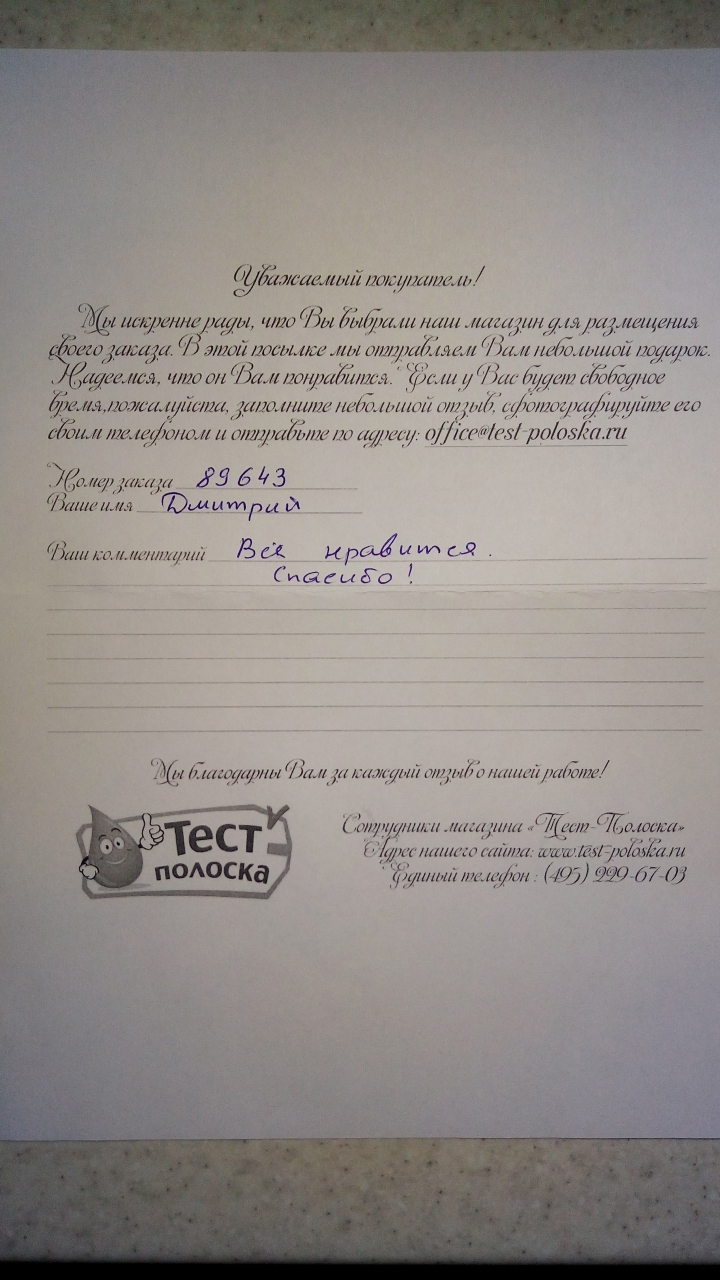 Уважаемый покупатель!
Мы искренне рады, что Вы выбрали наш магазин для размещения
своего заказа. В этой посылке мы отправляем Вам небольшой подарок.
Надеемся, что он Вам понравится. Если у Вас будет свободное
время,пожалуйста, заполните небольшой отзыв, сфотографируйте его
своим телефоном и отправьте по адресу: office@test-poloska.ru
Номер заказа 89643
Ваше имя Дмитрий
Ваш комментарий Всё нравится.
Спасибо!
Мы благодарны Вам за каждый отзыв о нашей работе!
Тест
полоска
Сотрудники магазина «Тест-Полоска»
Адрес нашего сайта: www.test-poloska.ru
Единый телефон : (495) 229-67-03